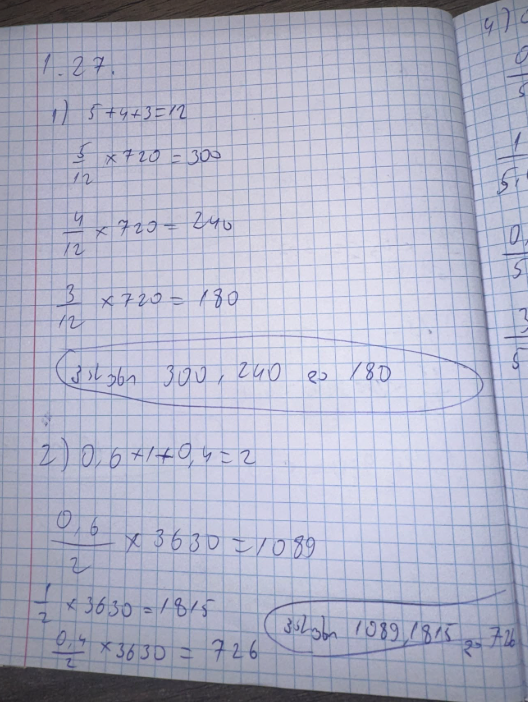 1.27.
1) 5+4+3=12
5/12 × 720 = 300
4/12 × 720 = 240
3/12 × 720 = 180
300, 240 და 180
2) 0,6+1+0,4=2
0,6/2 × 3630 = 1089
1/2 × 3630 = 1815
0,4/2 × 3630 = 726
1089, 1815 და 726
4)
1
5
3
5